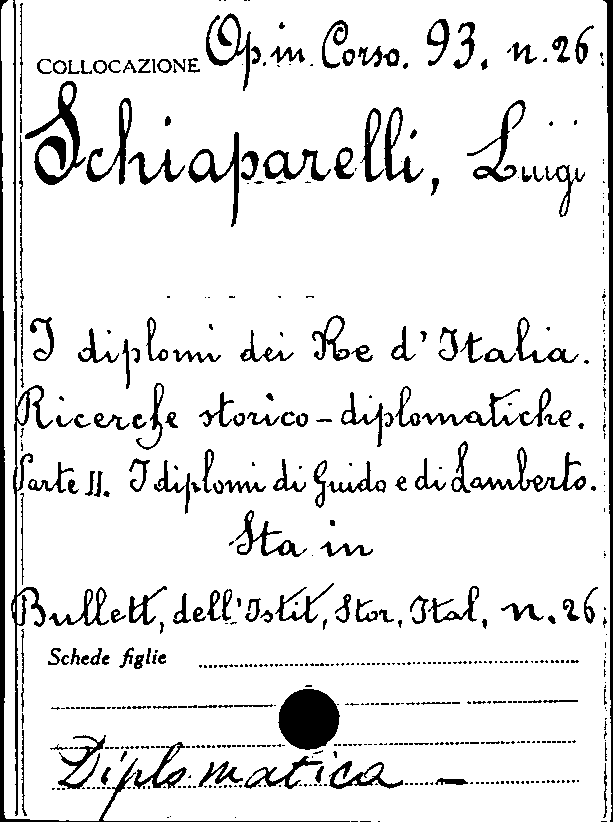 COLLOCAZIONE Op. in Corso. 93. n. 26.
Schiaparelli, Luigi
I diplomi dei Re d'Italia.
Ricerche storico-diplomatiche.
Parte II. I diplomi di Guido e di Lamberto.
Sta in
Bullett, dell'Istit, Stor, Ital, n. 26.
Schede figlie
Diplomatica –